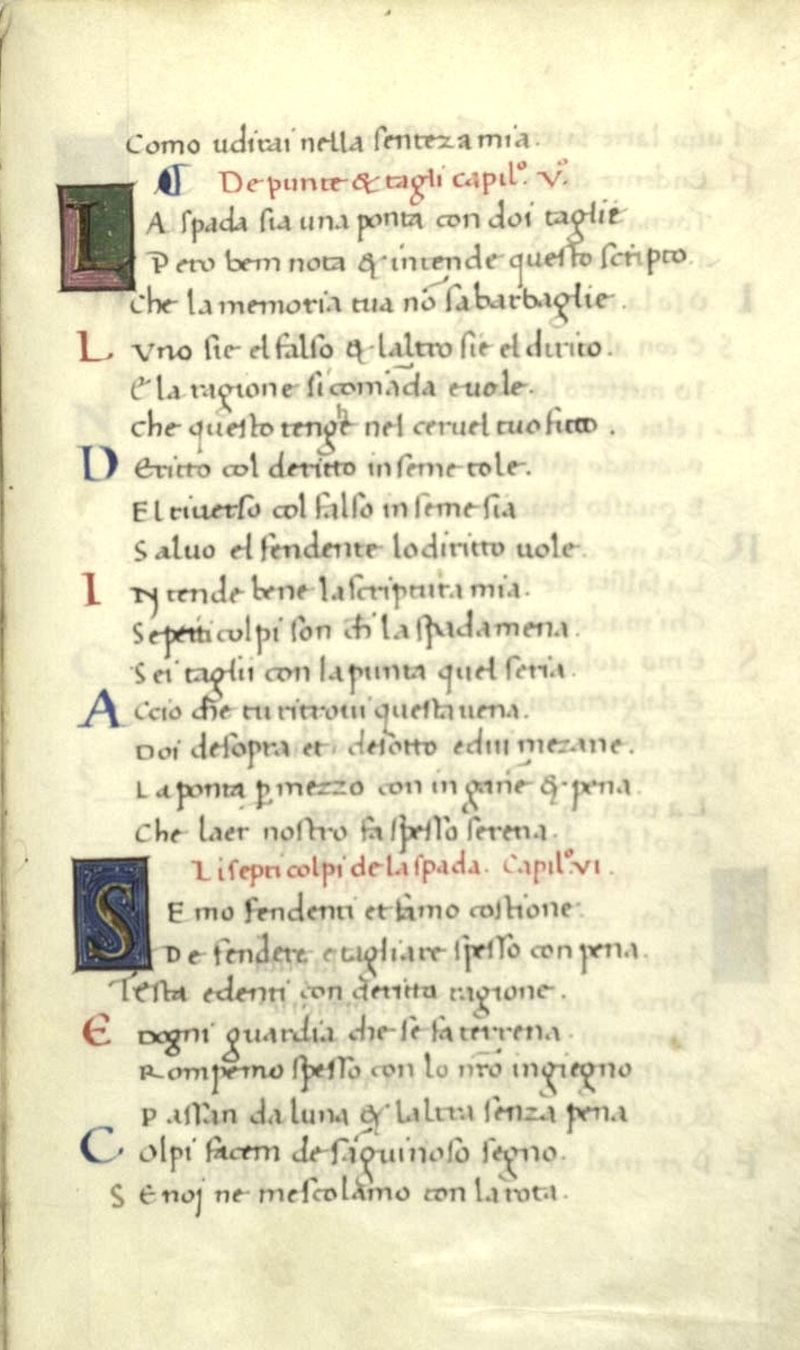 Como uditai nella sentēza mia.
¶ De punte & tagli capil.º Vº.
LA spada sia una ponta con doi taglie
Pero bem nota & intende questo scripto.
Che la memoria tua nō sabarbaglie.
L Vno sie el falso & laltro sie el dirito.
E la ragione si comāda e uole.
che questo tenghe nel ceruel tuo fitto.
D Eritto col deritto inseme tole.
El riuerso col falso inseme sia
Saluo el fendente lo diritto uole.
I Ntende bene la scriptura mia.
Septiti colpi son ch̄ la spada mena.
Sei taglii con la punta quel feria.
A Ccio che tu ritroui questa uena.
Doi de sopra et de sotto e dui mezane.
La ponta p̱ mezzo con ingāne & pena.
Che laer nostro fa spesso serena.
Li septi colpi de la spada. Capil.º VI.
SEmo fendenti et famo costione.
De fendere e tagliare spesso con pena.
Testa e denti con deritta ragione.
E Dogni guardia che se fa terrena.
Rompemo spesso con lo nr̄o ingiegno
Passan da luna & laltra senza pena
C Olpi facem de sāguinoso segno.
Se noj ne mescolamo con la rota.